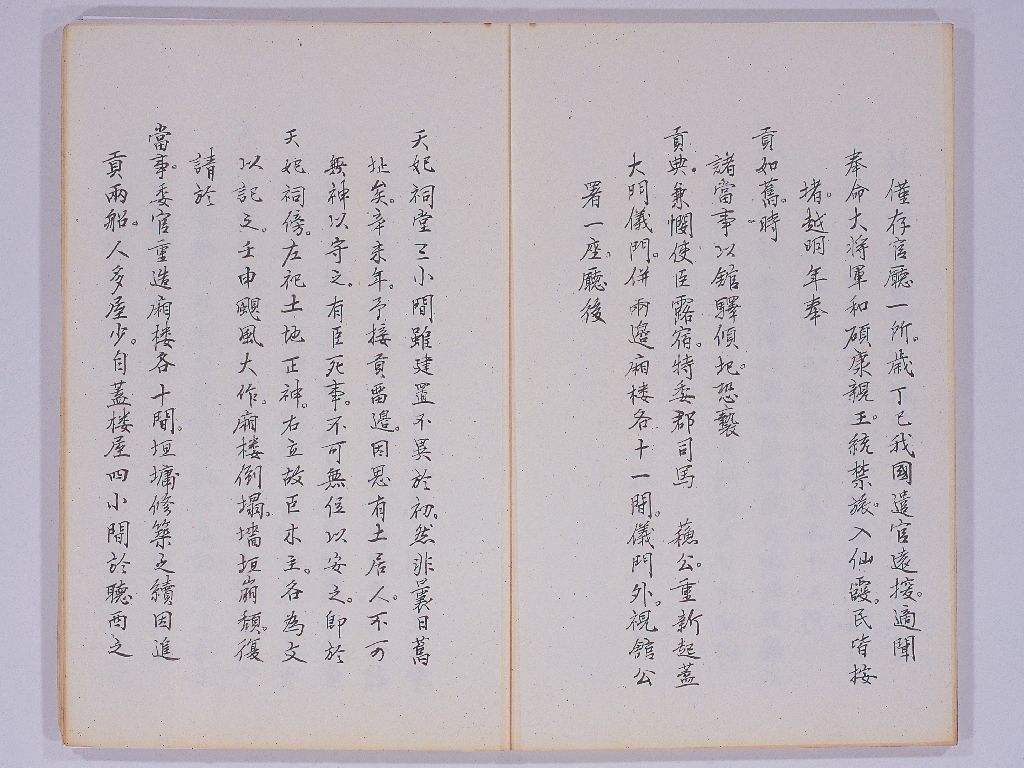 僅存官廳一所。歳丁巳我國遣官遠接。適聞
奉命大将軍和碩康親王。統禁旅。入仙霞。民皆按
堵。越明年奉
貢如舊。時
諸當事以舘驛傾圯。恐褻
貢典。兼憫使臣露宿。特委郡司馬　蘓公。重新起蓋
大門儀門。併兩邉廂楼各十一間。儀門外。視舘公
署一座。廳後
天妃祠堂三小間。雖建置不異於初。然非曩日舊
址矣。辛未年。予接貢畱邉。因思有土居人。不可
無神以守之。有臣死事。不可無位以安之。即於
天妃祠傍。左祀土地正神。右立故臣木主。各為文
以記之。壬申颶風大作。廂楼倒塌。墻垣崩頽。復
請於
當事。委官重造廂楼各十間。垣墉修築之。續因進
貢兩船。人多屋少。自蓋楼屋四小間於聴西之